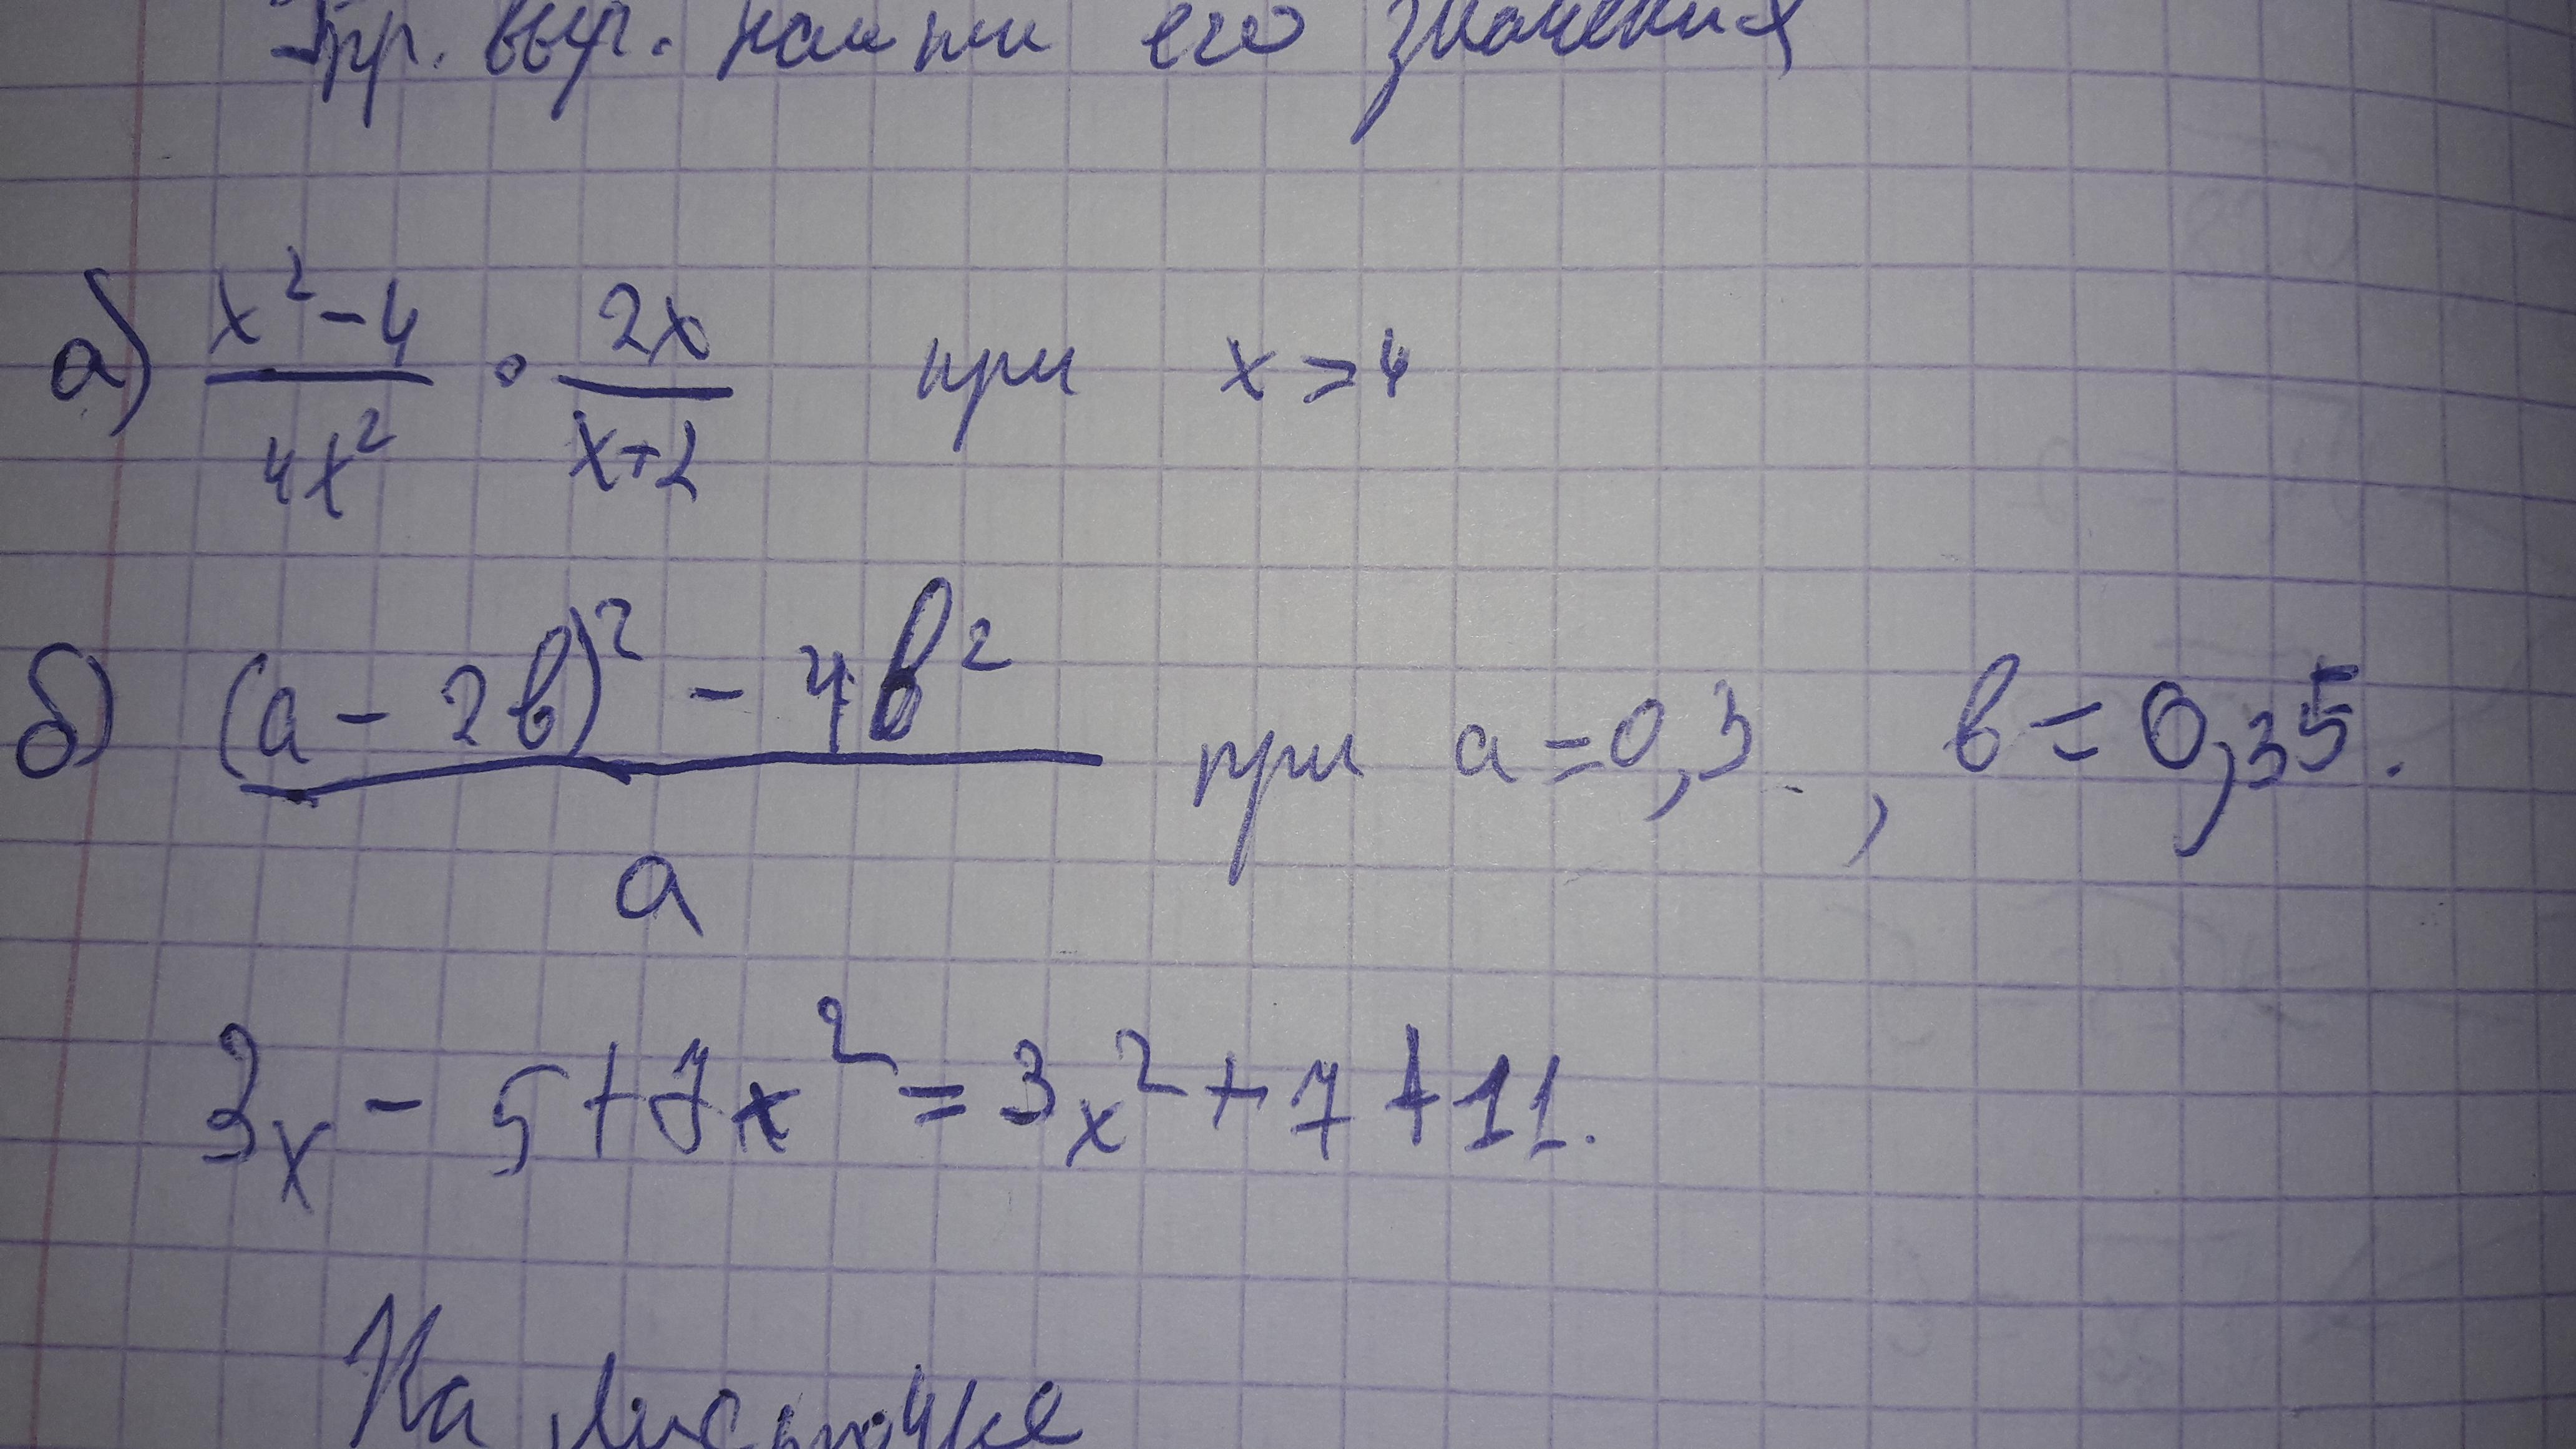 Упр. выр. найти его значения
а) (x² - 4)/(4x²) · (2x)/(x+2) при x = 4
б) ((a - 2b)² - 4b²)/a при a = 0,3, b = 0,35.
3x - 5 + 7x² = 3x² + 7 + 11.
На листочке